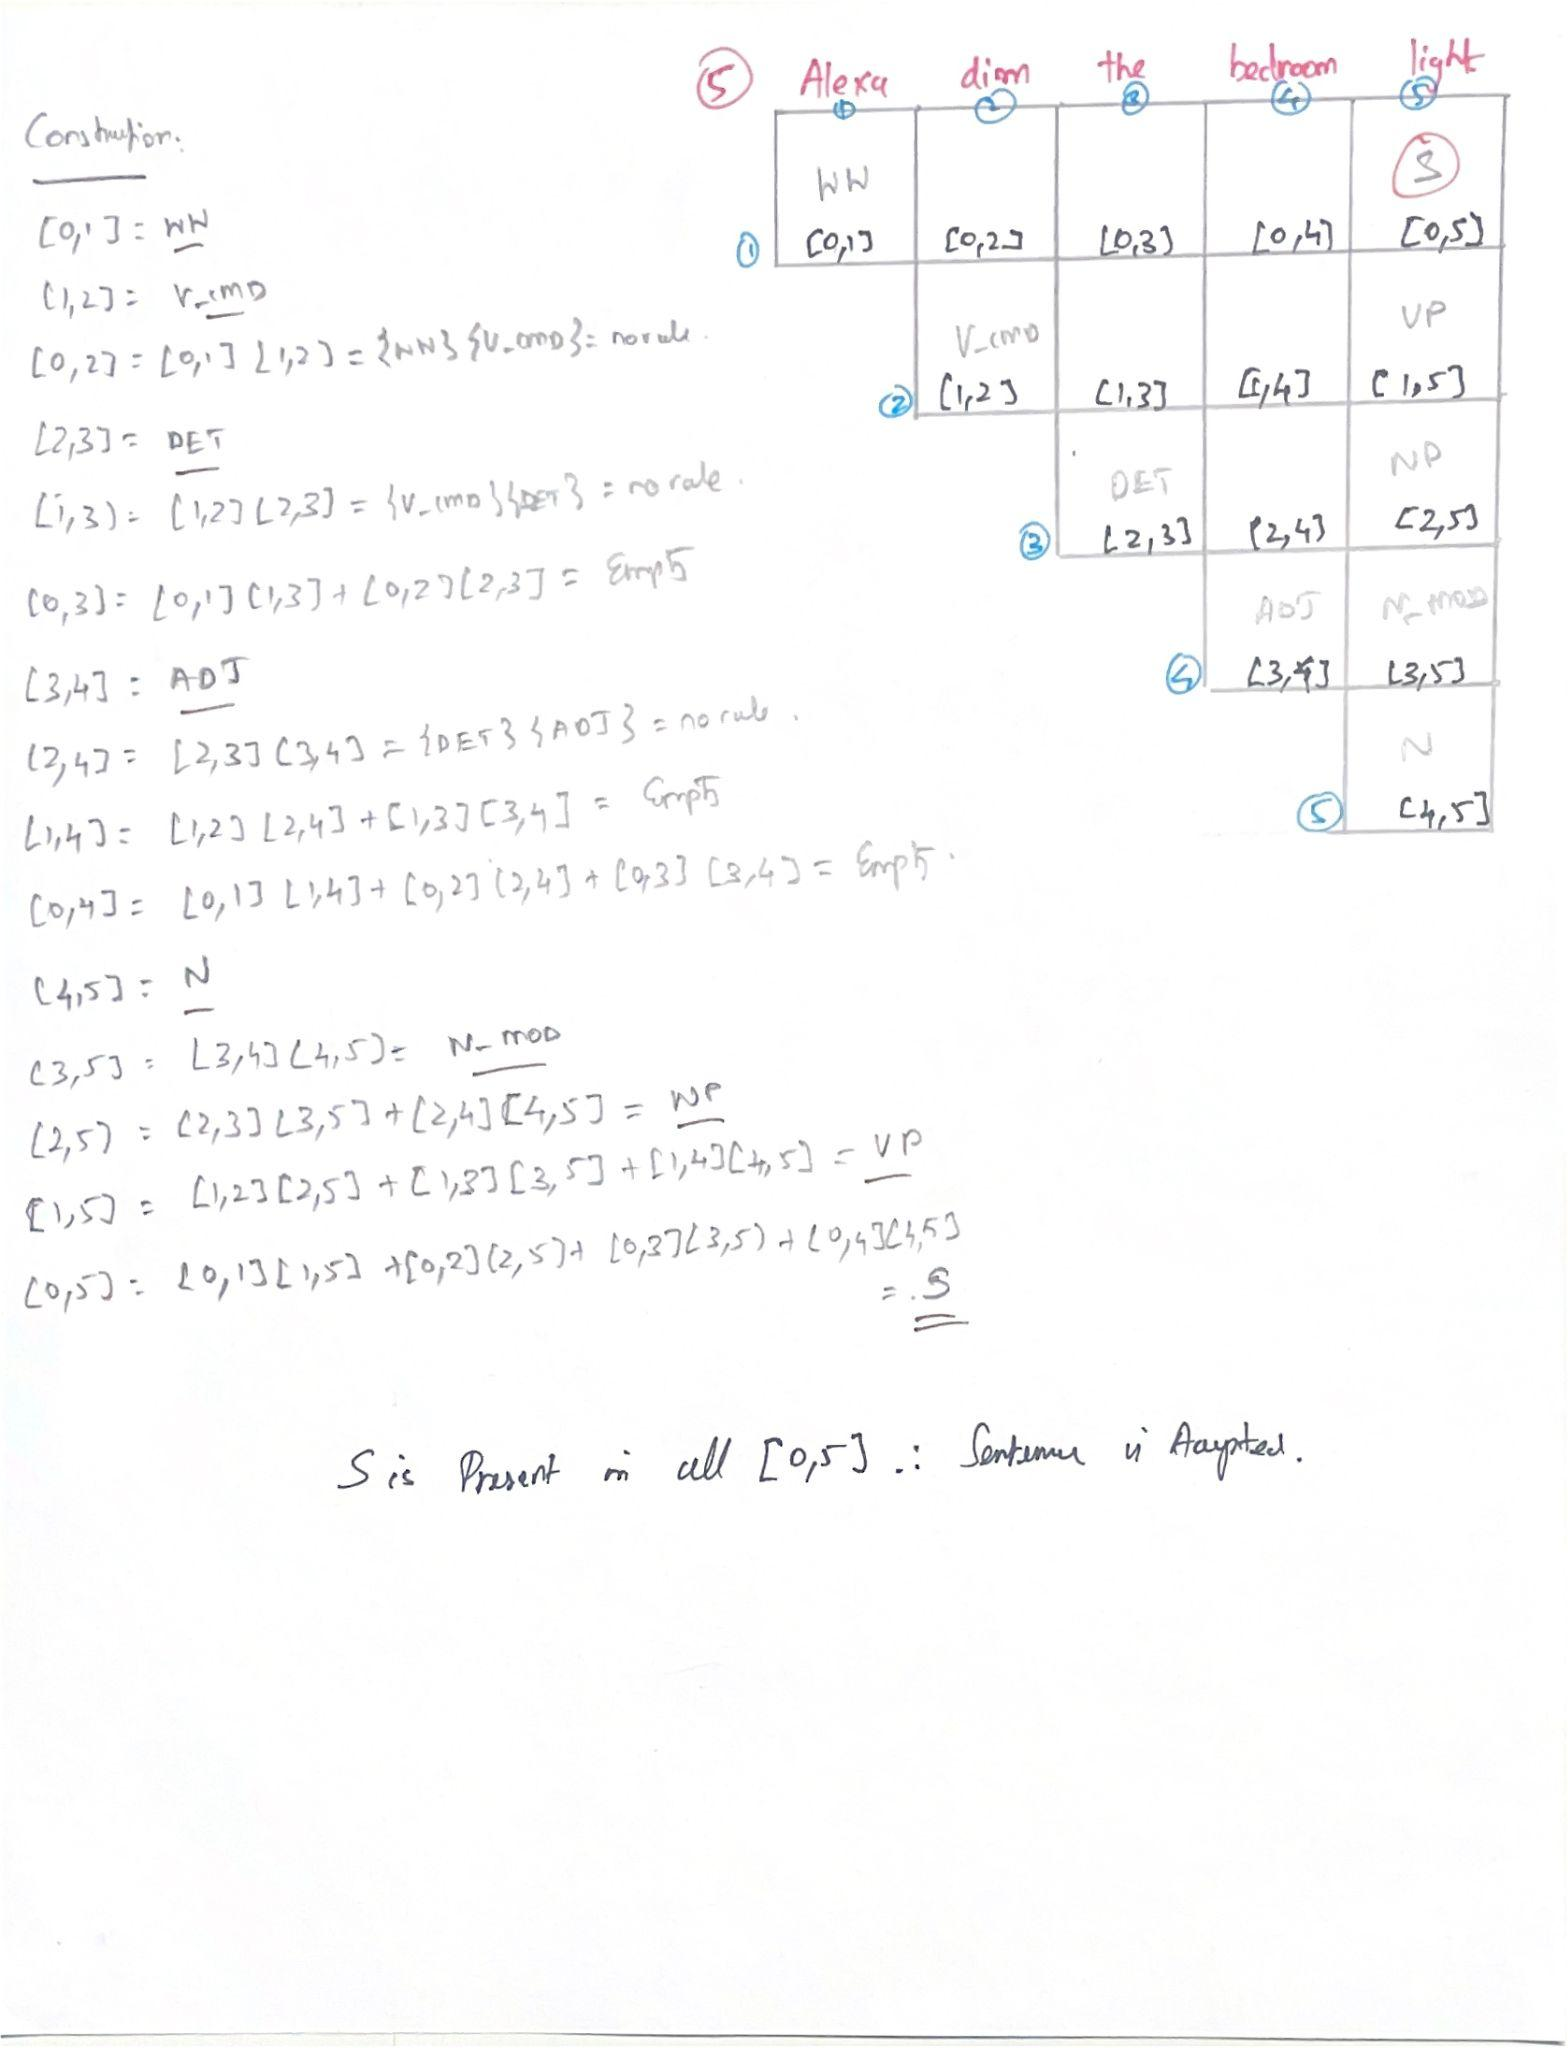 ⑤ Alexa dim the bedroom light
① ② ③ ④ ⑤
WW S
① [0,1] [0,2] [0,3] [0,4] [0,5]
V_CMD VP
② [1,2] [1,3] [1,4] [1,5]
DET NP
③ [2,3] [2,4] [2,5]
ADJ N_MOD
④ [3,4] [3,5]
N
⑤ [4,5]
Construction:
[0,1] = WW
[1,2] = V_CMD
[0,2] = [0,1] [1,2] = {WW} {V_CMD} = no rule.
[2,3] = DET
[1,3] = [1,2] [2,3] = {V_CMD} {DET} = no rule.
[0,3] = [0,1] [1,3] + [0,2] [2,3] = Empty
[3,4] = ADJ
[2,4] = [2,3] [3,4] = {DET} {ADJ} = no rule.
[1,4] = [1,2] [2,4] + [1,3] [3,4] = Empty
[0,4] = [0,1] [1,4] + [0,2] [2,4] + [0,3] [3,4] = Empty.
[4,5] = N
[3,5] = [3,4] [4,5] = N_MOD
[2,5] = [2,3] [3,5] + [2,4] [4,5] = NP
[1,5] = [1,2] [2,5] + [1,3] [3,5] + [1,4] [4,5] = VP
[0,5] = [0,1] [1,5] + [0,2] [2,5] + [0,3] [3,5] + [0,4] [4,5]
= S
S is Present in cell [0,5] ∴ Sentence is Accepted.